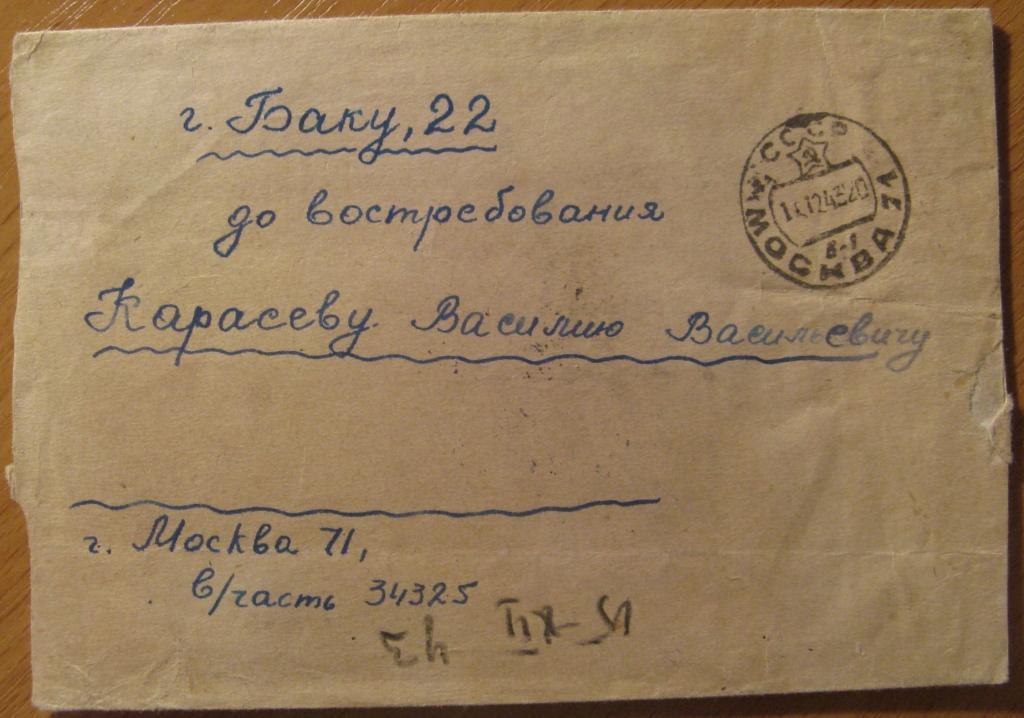 г. Баку, 22
до востребования
Карасеву Василию Васильевичу
СССР
МОСКВА 71
г. Москва 71,
в/часть 34325
15-XII
43